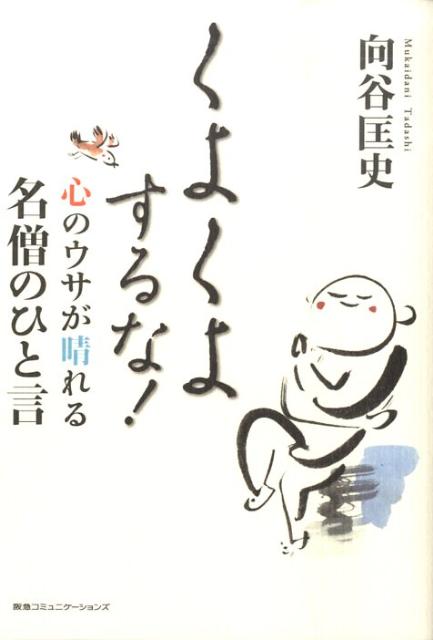 向谷匡史
Mukaidani Tadashi
くよくよ
するな!
心のウサが晴れる
名僧のひと言
阪急コミュニケーションズ